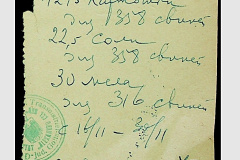 12,5 картошки
для 358 свиней
22,5 соли
для 358 свиней
30 мяса
для 316 свиней
с 16/II – 28/II